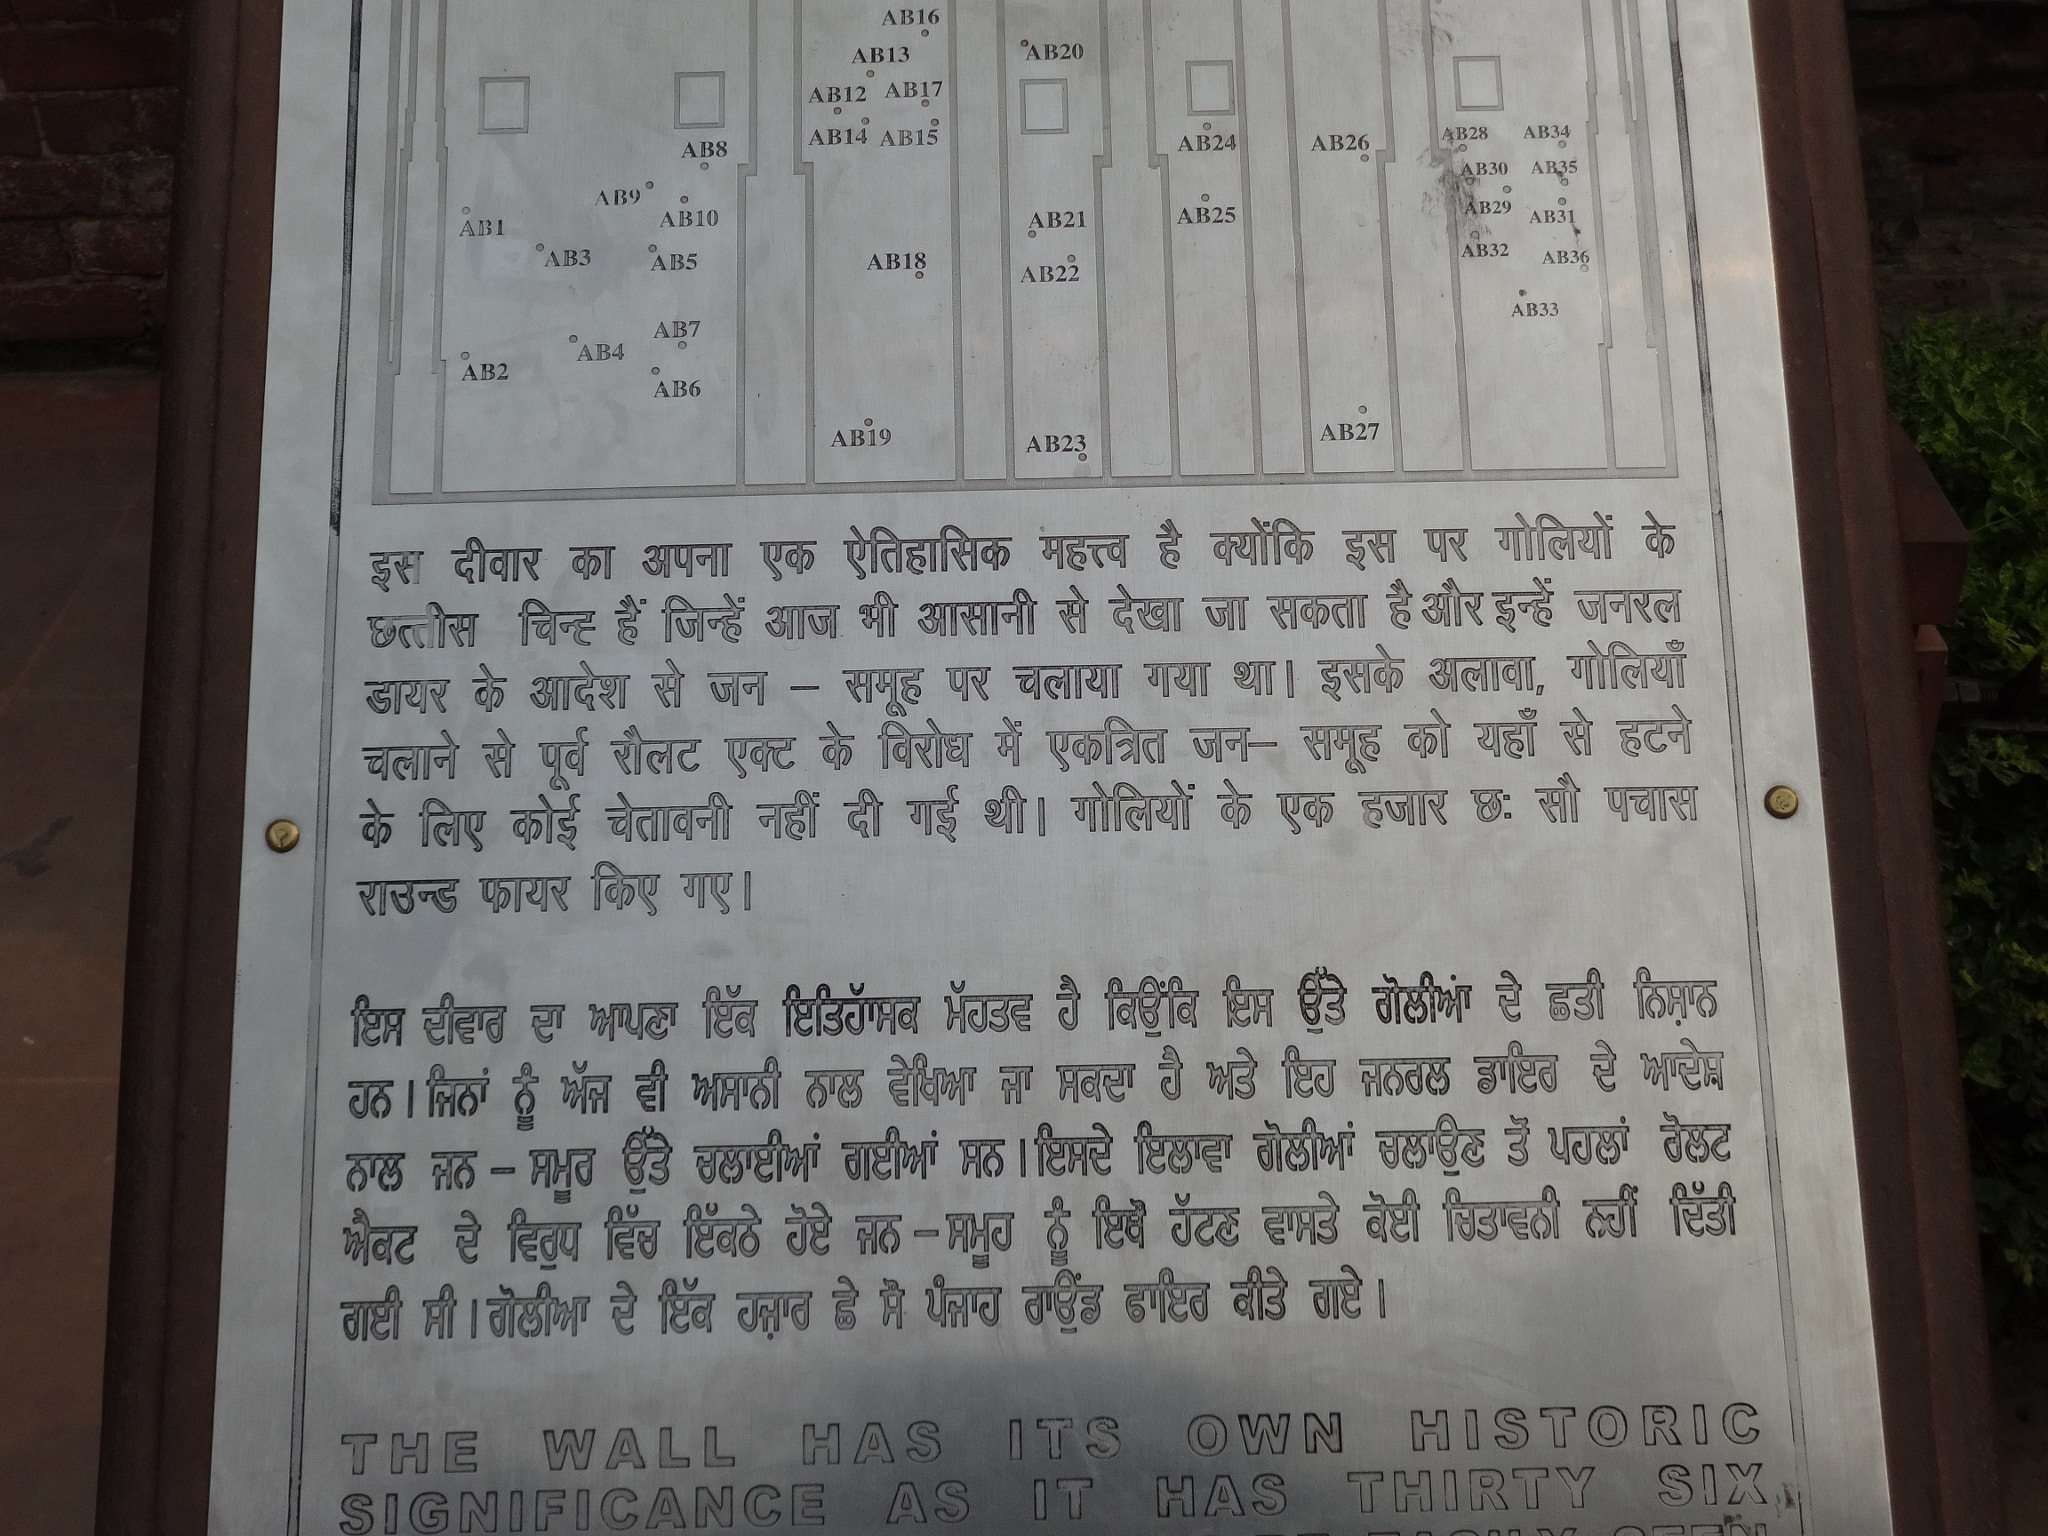 AB16
AB13
AB20
AB12 AB17
AB14 AB15
AB24
AB26
AB28 AB34
AB8
AB30 AB35
AB9
AB10
AB29
AB31
AB1
AB21
AB25
AB3
AB5
AB18
AB22
AB32
AB36
AB33
AB7
AB4
AB2
AB6
AB19
AB23
AB27
इस दीवार का अपना एक ऐतिहासिक महत्त्व है क्योंकि इस पर गोलियों के
छत्तीस चिन्ह हैं जिन्हें आज भी आसानी से देखा जा सकता है और इन्हें जनरल
डायर के आदेश से जन – समूह पर चलाया गया था। इसके अलावा, गोलियाँ
चलाने से पूर्व रौलट एक्ट के विरोध में एकत्रित जन– समूह को यहाँ से हटने
के लिए कोई चेतावनी नहीं दी गई थी। गोलियों के एक हजार छः सौ पचास
राउन्ड फायर किए गए।
ਇਸ ਦੀਵਾਰ ਦਾ ਆਪਣਾ ਇੱਕ ਇਤਿਹਾੱਸਕ ਮੱਹਤਵ ਹੈ ਕਿਉਂਕਿ ਇਸ ਉੱਤੇ ਗੋਲੀਆਂ ਦੇ ਛਤੀ ਨਿਸ਼ਾਨ
ਹਨ। ਜਿਨਾਂ ਨੂੰ ਅੱਜ ਵੀ ਅਸਾਨੀ ਨਾਲ ਵੇਖਿਆ ਜਾ ਸਕਦਾ ਹੈ ਅਤੇ ਇਹ ਜਨਰਲ ਡਾਇਰ ਦੇ ਆਦੇਸ਼
ਨਾਲ ਜਨ – ਸਮੂਰ ਉੱਤੇ ਚਲਾਈਆਂ ਗਈਆਂ ਸਨ। ਇਸਦੇ ਇਲਾਵਾ ਗੋਲੀਆਂ ਚਲਾਉਣ ਤੋਂ ਪਹਲਾਂ ਰੋਲਟ
ਐਕਟ ਦੇ ਵਿਰੁਧ ਵਿੱਚ ਇੱਕਠੇ ਹੋਏ ਜਨ – ਸਮੂਹ ਨੂੰ ਇਥੋਂ ਹੱਟਣ ਵਾਸਤੇ ਕੋਈ ਚਿਤਾਵਨੀ ਨਹੀਂ ਦਿੱਤੀ
ਗਈ ਸੀ। ਗੋਲੀਆ ਦੇ ਇੱਕ ਹਜ਼ਾਰ ਛੇ ਸੌ ਪੰਜਾਹ ਰਾਉਂਡ ਫਾਇਰ ਕੀਤੇ ਗਏ।
THE WALL HAS ITS OWN HISTORIC
SIGNIFICANCE AS IT HAS THIRTY SIX